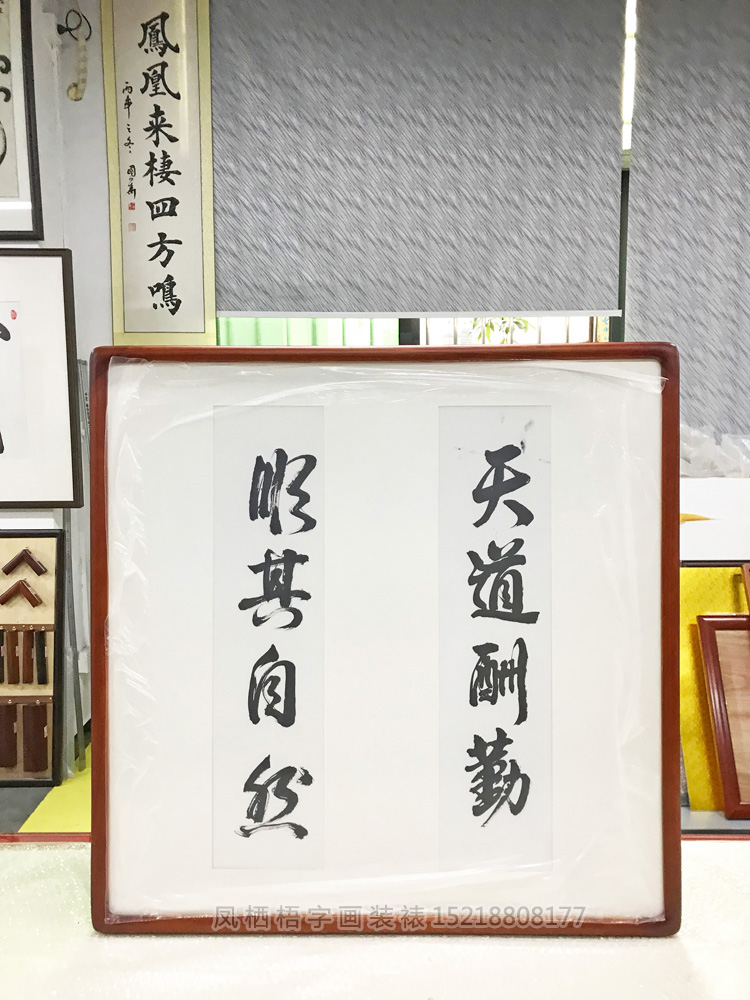 鳳凰来棲四方鳴
丙年之冬
天道酬勤
順其自然
凤栖梧字画装裱15218808177